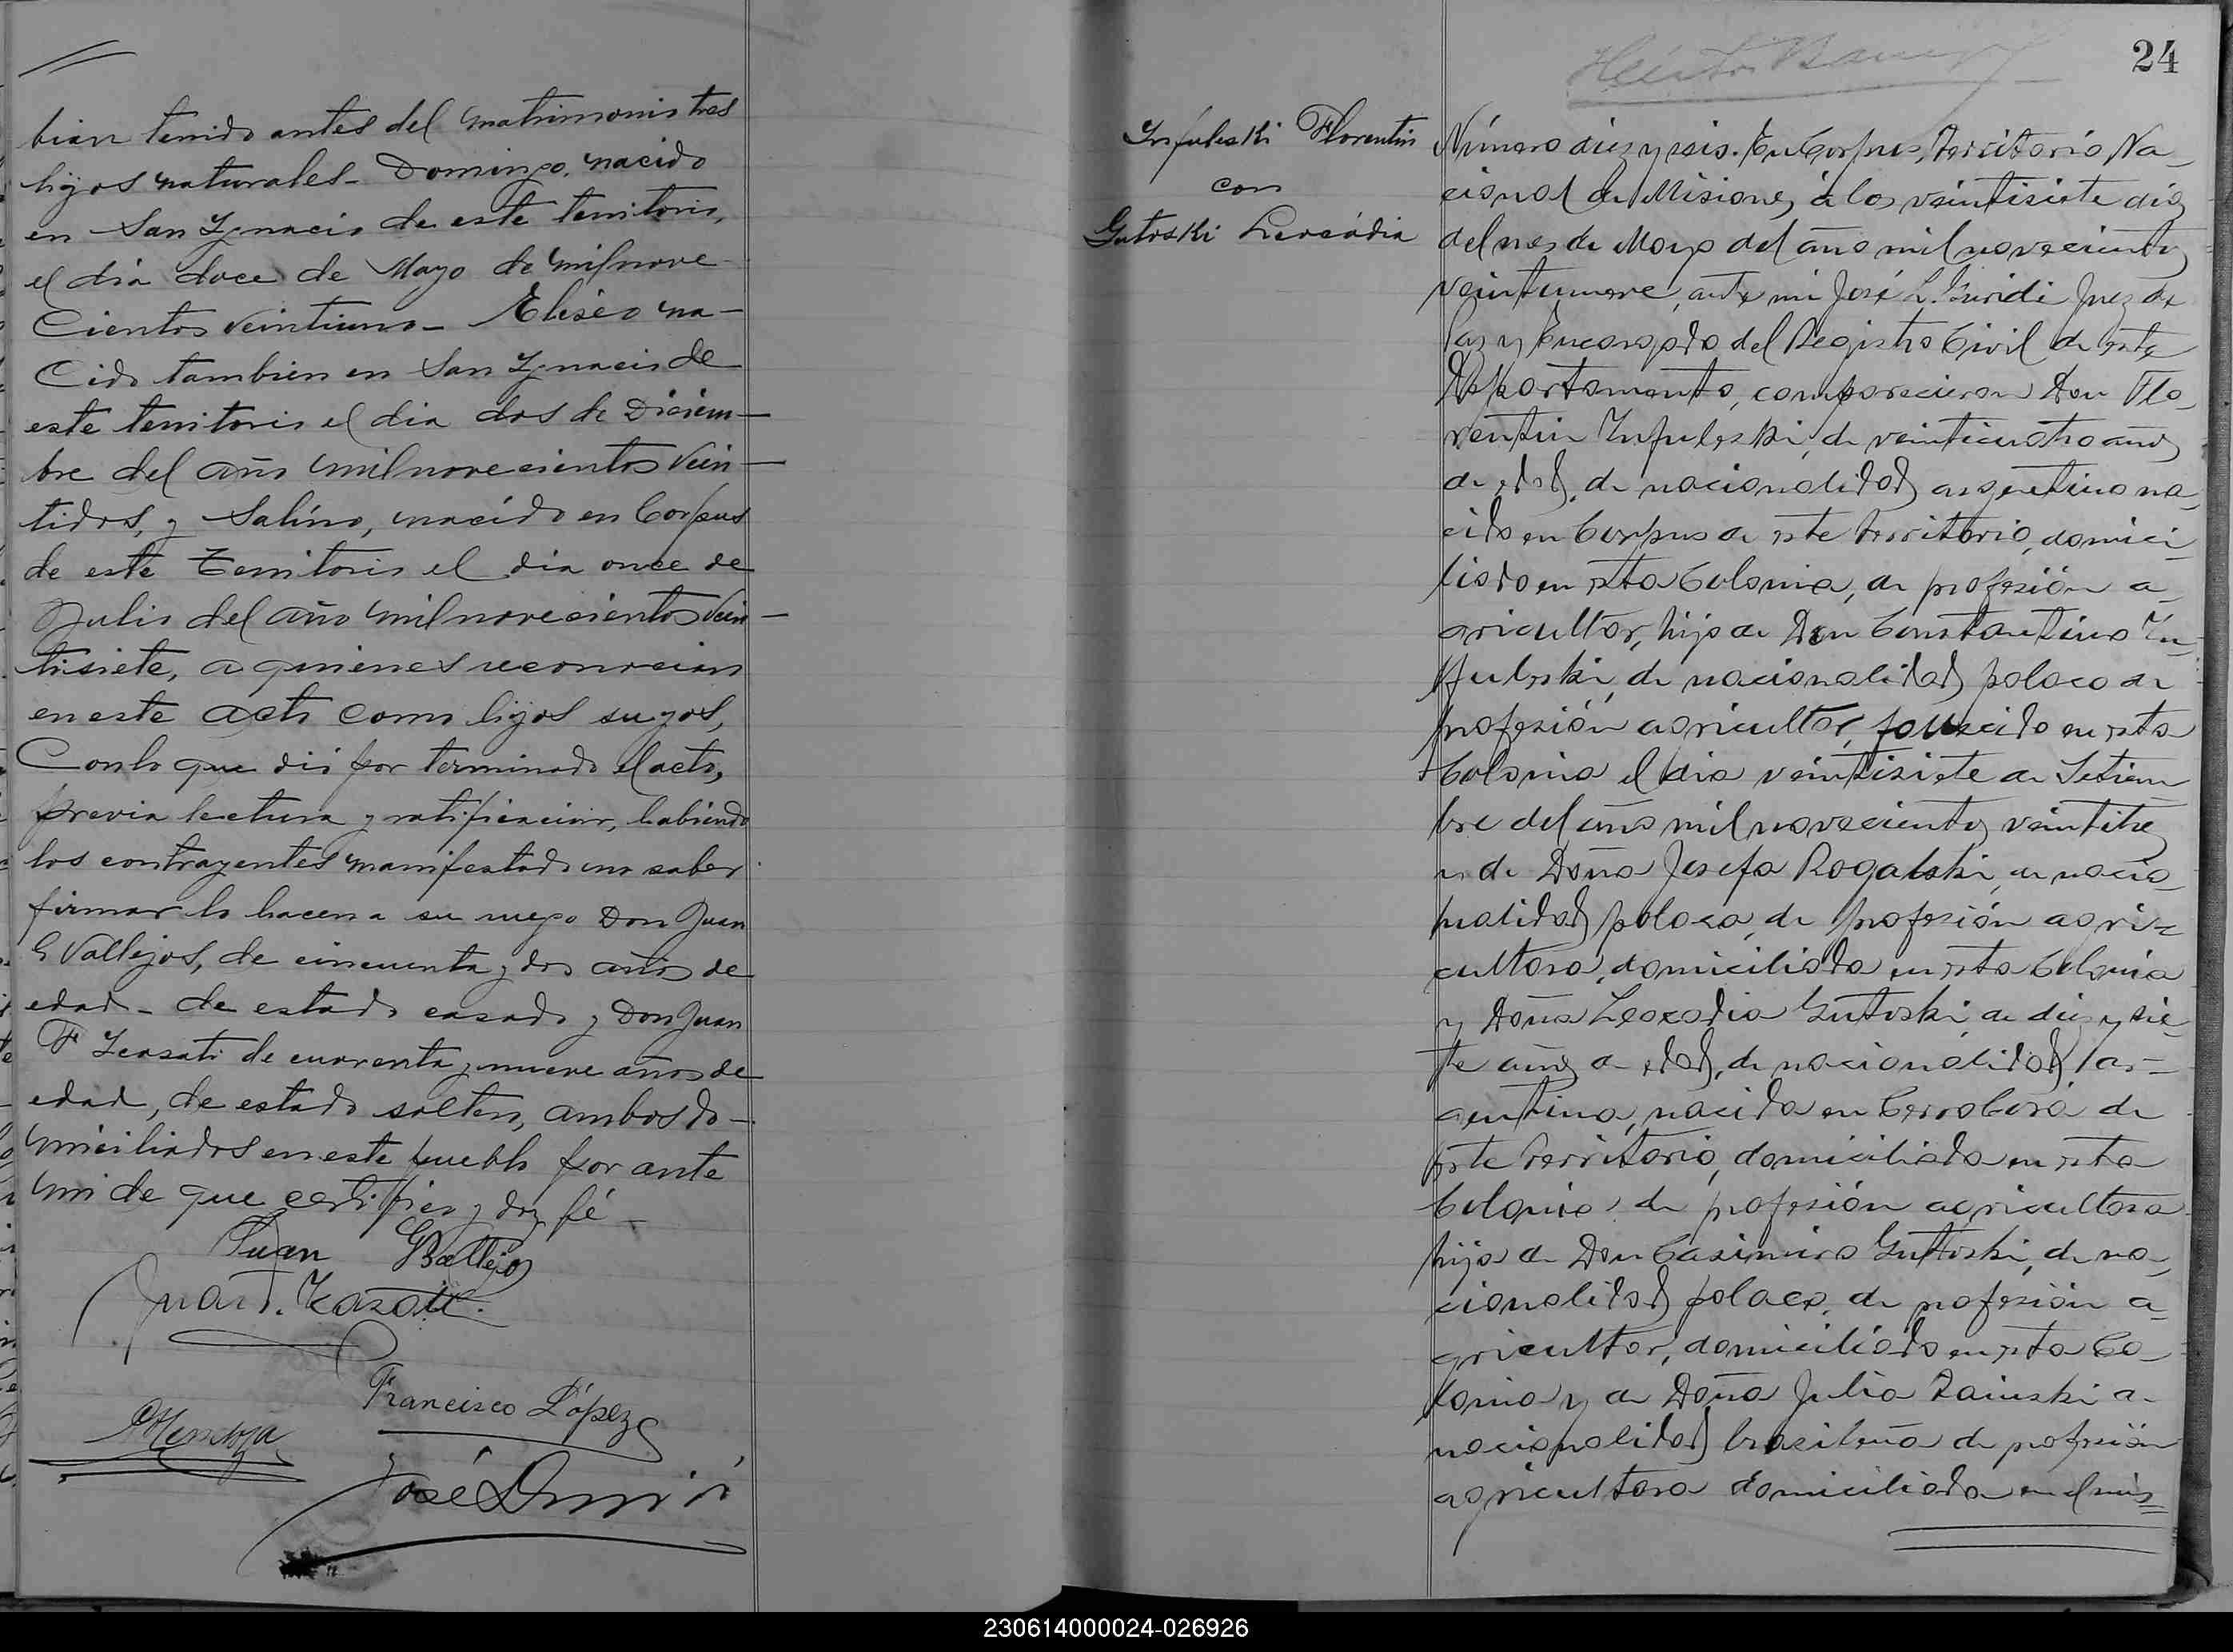 bian tenido antes del matrimonio tres
hijos naturales- Domingo, nacido
en San Ygnacio de este territorio,
el dia doce de Mayo de mil nove
Cientos veintiuno- Eliséo na-
Cido tambien en San Ygnacio de
este territorio el dia dos de Diciem-
bre del año mil novecientos vein-
tidos, y Salino, nacido en Corpus
de este territorio el dia once de
Julio del año mil novecientos vein-
tisiete, a quienes reconocian
en este acto como hijos suyos,
Con lo que dió por terminado el acto,
previa lectura y ratificacion, habiendo
los contrayentes manifestado no saber
firmar lo hacen a su ruego Don Juan
G Vallejos, de cincuenta y dos años de
edad- de estado casado y Don Juan
F de cuarenta y nueve años de
edad, de estado soltero, ambos do-
miciliados en este pueblo por ante
mi de que certifico y doy fé-
Juan G Vallejos
Juan F.
Francisco López
Mendoza
José
24
Florentin
con
Gutoski Leocádia
Número diez y seis. En Corpus, Territorio Na-
cional de Misiones, á los veintisiete dias
del mes de Mayo del año mil novecientos
veintinueve, ante mi José Juez de
Paz y Encargado del Registro Civil de este
Departamento, comparecieron Don Flo-
rentin Infuleski, de veinticuatro años
de edad, de nacionalidad argentino na-
cido en Corpus de este territorio, domici-
liado en esta Colonia, de profesión a-
gricultor, hijo de Don Constantino In-
fuleski, de nacionalidad polaco de
profesión agricultor, fallecido en esta
Colonia el dia veintisiete de Setiem
bre del año mil novecientos veintitres
y de Doña Josefa Rogalski, de nacio-
nalidad polaca, de profesión agri-
cultora, domiciliada en esta Colonia
y Doña Leocadia Gutoski, de diez y sie-
te años de edad, de nacionalidad ar-
gentina, nacida en Cerro Corá de
este territorio, domiciliada en esta
Colonia de profesión agricultora
hija de Don Casimiro Gutoski, de na-
cionalidad polaco, de profesión a-
gricultor, domiciliado en esta Co-
lonia y de Doña Julia Zainski de
nacionalidad brasileña de profesión
agricultora domiciliada en el mis=
230614000024-026926